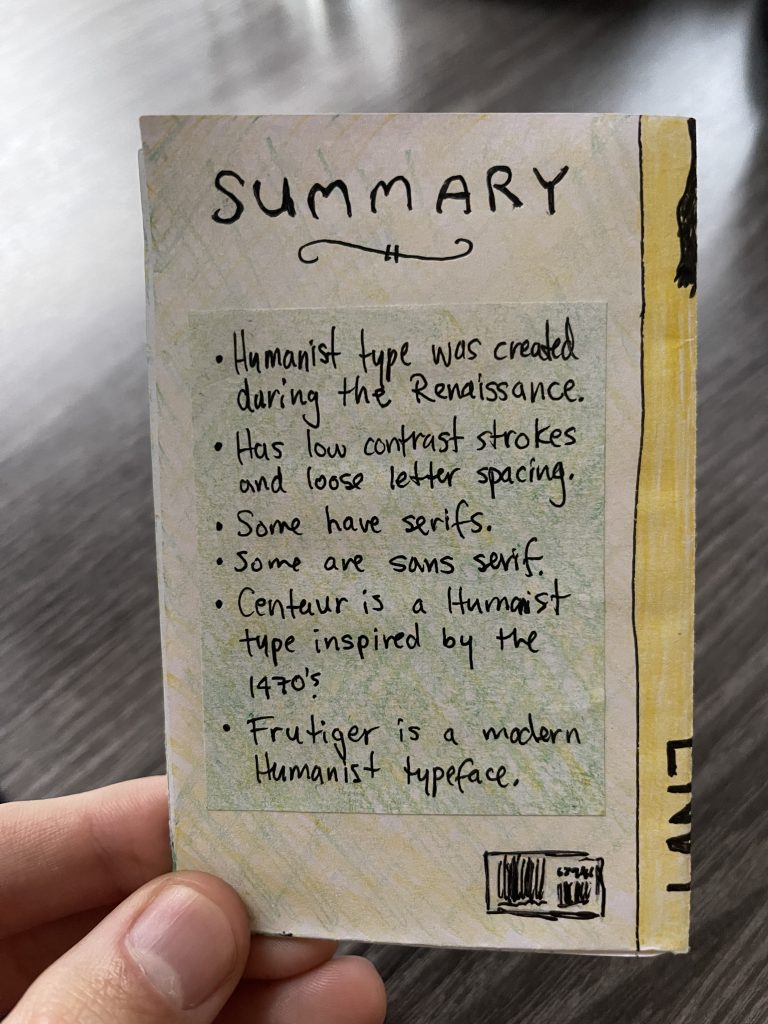 SUMMARY
• Humanist type was created
during the Renaissance.
• Has low contrast strokes
and loose letter spacing.
• Some have serifs.
• Some are sans serif.
• Centaur is a Humanist
type inspired by the
1470's
• Frutiger is a modern
Humanist typeface.